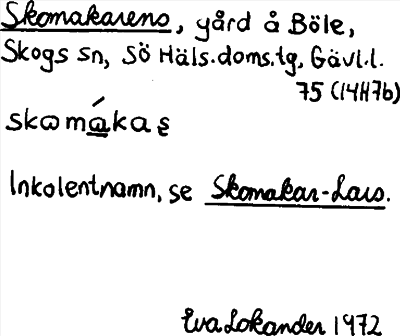 Skomakarens, gård å Böle,
Skogs sn, Sö Häls.doms.tg, Gävl.l.
75 (14H7b)
skωmákaʂ
Inkolentnamn, se Skomakar-Lars.
Eva Lokander 1972